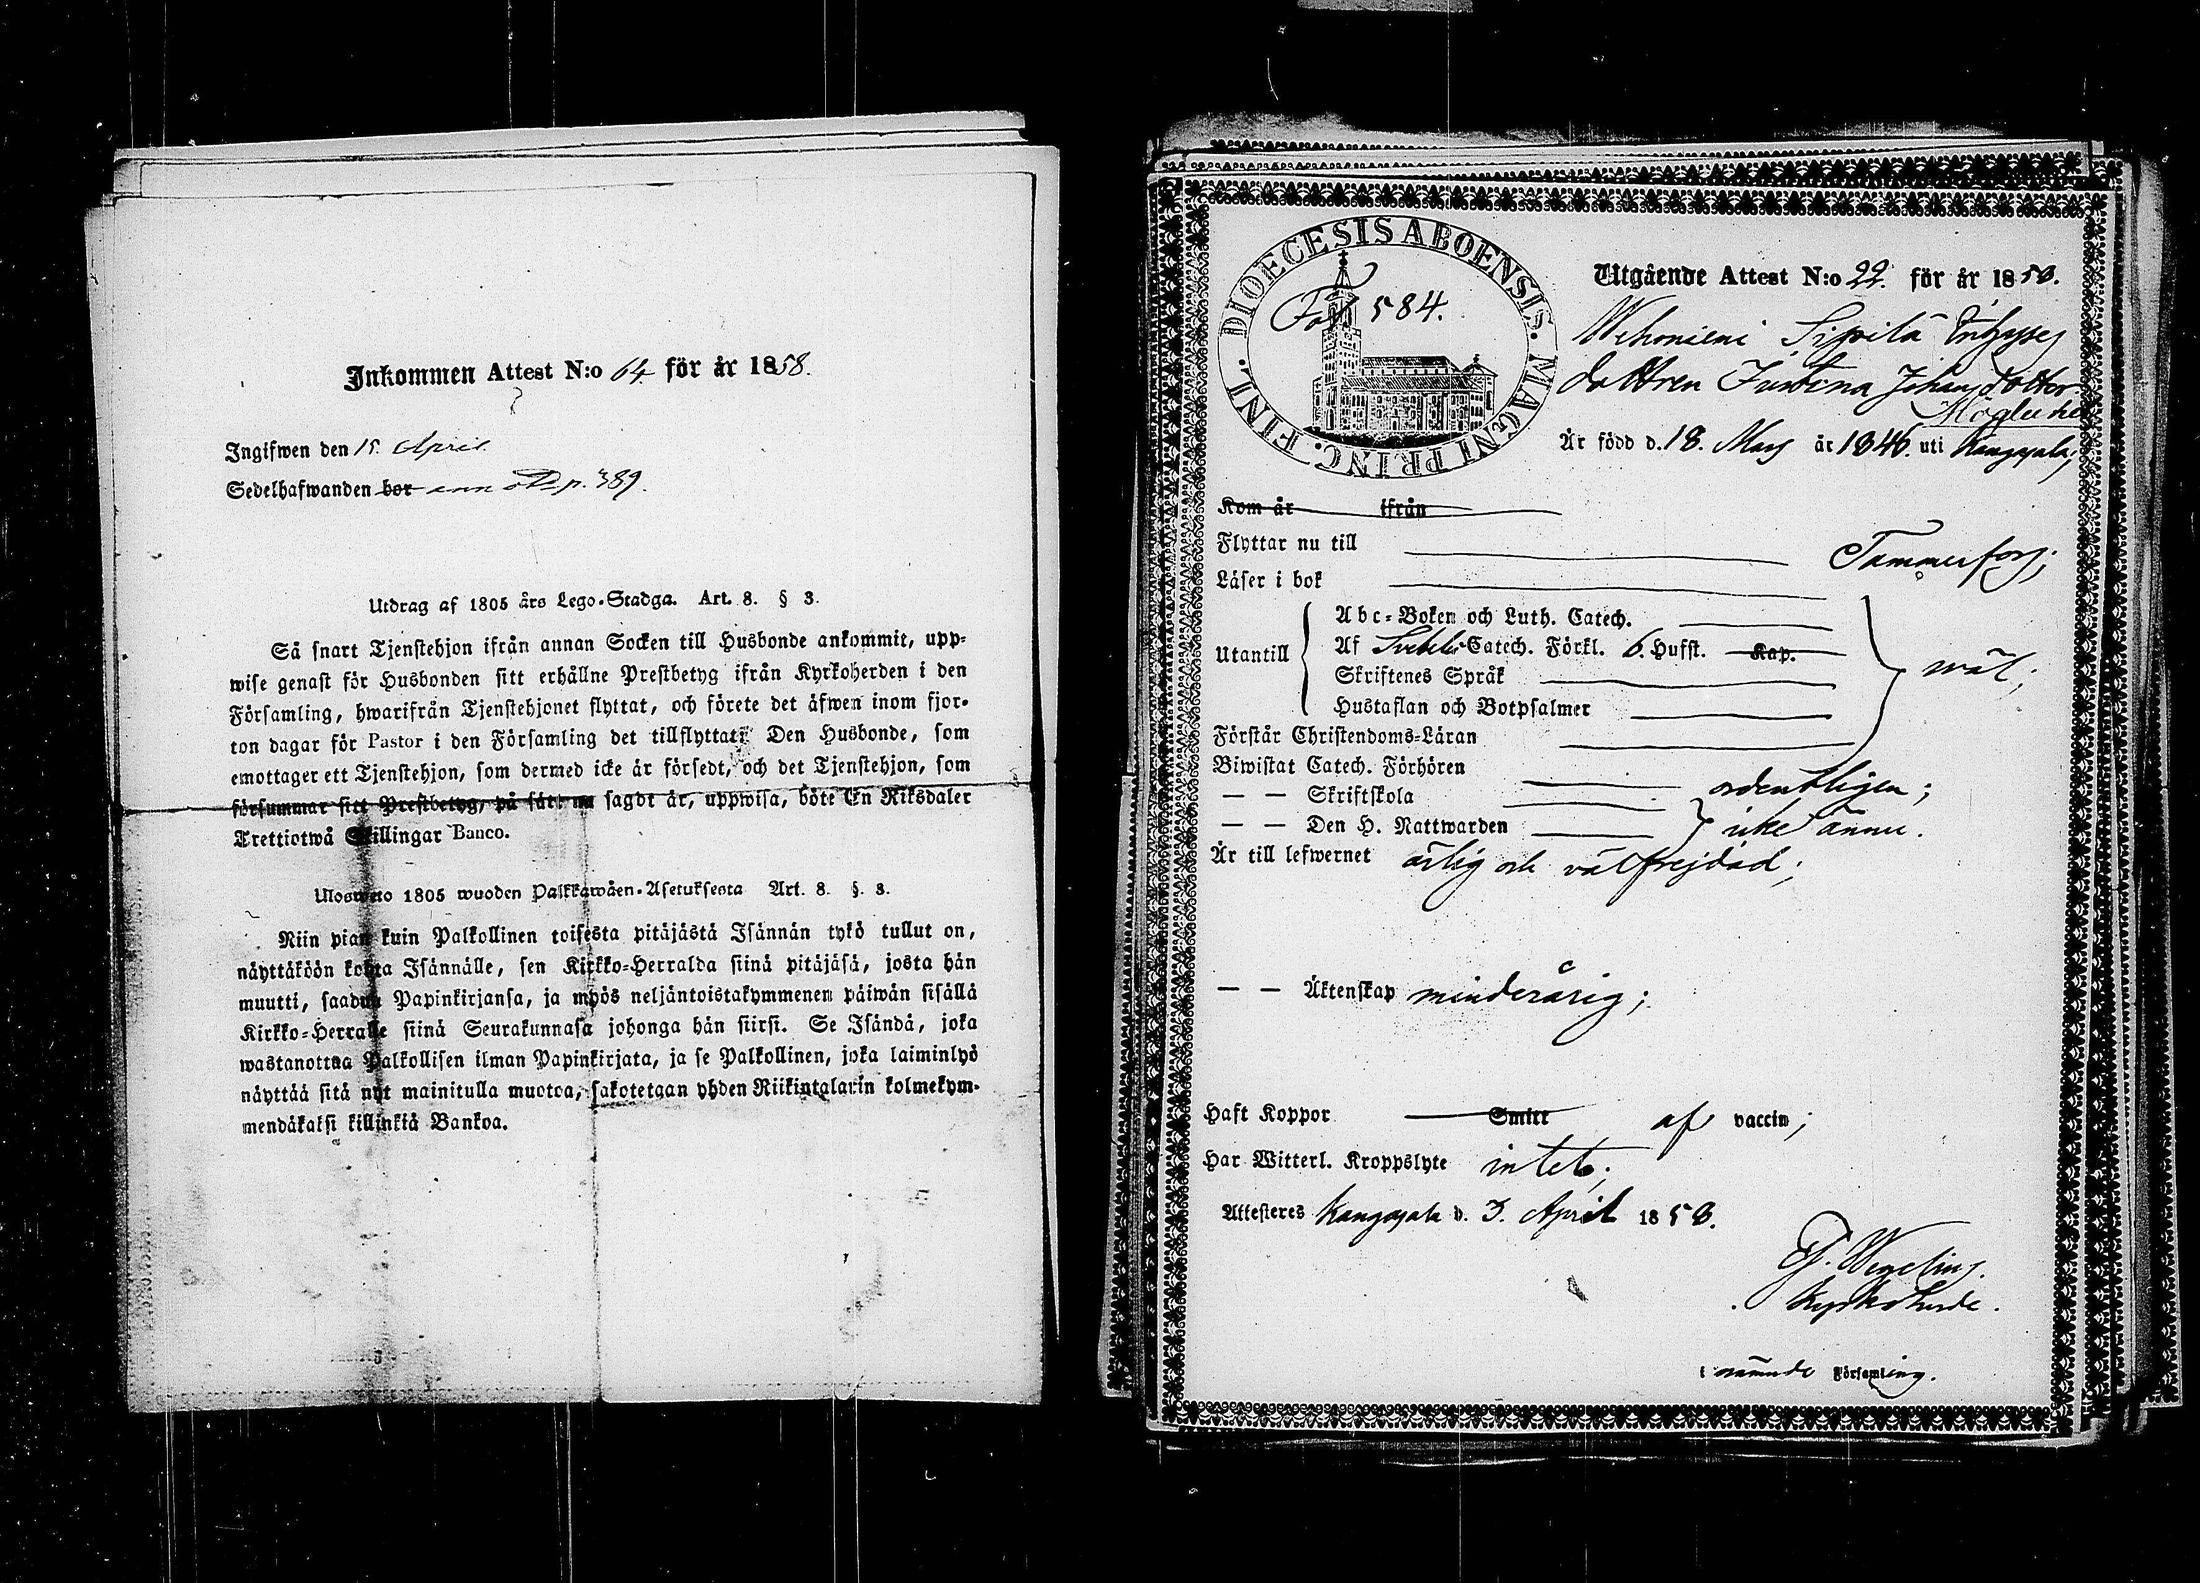 Inkommen Attest N:o 64. för år 1858.
Ingifwen den 15. April
Sedelhafwanden bor p. 389.
Utdrag af 1805 års Lego-Stadga. Art. 8. § 3.
Så snart Tjenstehjon ifrån annan Socken till Husbonde ankommit, upp-
wise genast för Husbonden sitt erhållne Prestbetyg ifrån Kyrkoherden i den
Församling, hwarifrån Tjenstehjonet flyttat, och förete det äfwen inom fjor-
ton dagar för Pastor i den Församling det tillflyttat. Den Husbonde, som
emottager ett Tjenstehjon, som dermed icke är försedt, och det Tjenstehjon, som
försummar sitt Prestbetyg, på sätt nu sagdt är, uppwisa, böte En Riksdaler
Trettiotwå Skillingar Banco.
Uloswето 1805 wuoden Palkkawäen-Asetuksesta Art. 8. §. 3.
Niin pian kuin Palkollinen toisesta pitäjästä Isännän tykö tullut on,
näyttäköön kohta Isännälle, sen Kirkko-Herralda siinä pitäjäsä, josta hän
muutti, saadun Papinkirjansa, ja myös neljäntoistakymmenen päiwän sisällä
Kirkko-Herralle siinä Seurakunnasa johonga hän siirsi. Se Isändä, joka
wastanottaa Palkollisen ilman Papinkirjata, ja se Palkollinen, joka laiminlyö
näyttää sitä nyt mainitulla muotoa, sakotetaan yhden Riikintalarin kolmekym-
mendäkaksi killinkiä Bankoa.
DIOECESIS ABOENSIS. MAGNI PRINC. FINL.
Fol 584.
Utgående Attest N:o 22. för år 1858.
Wehoniemi Sipilä Inhyses
dottren Justina Johansdotter
Är född d. 18. Mars år 1846. uti Kangasala;
Kom år ifrån
Flyttar nu till Tammerfors;
Läser i bok
Utantill
Abc-Boken och Luth. Catech.
Af Svebelii Catech. Förkl. 6. Hufst. Kap.
Skriftenes Språk
Hustaflan och Botpsalmer
wäl;
Förstår Christendoms-Läran
Biwistat Catech. Förhören ordentligen;
— — Skriftskola
— — Den H. Nattwarden icke ännu.
Är till lefwernet ärlig och välfrejdad;
— — Äktenskap minderårig;
Haft Koppor Smitt af vaccin;
Har Witterl. Kroppslyte intet;
Attesteres Kangasala d. 3. April 1858.
Kyrkoherde.
i nämnde Församling.